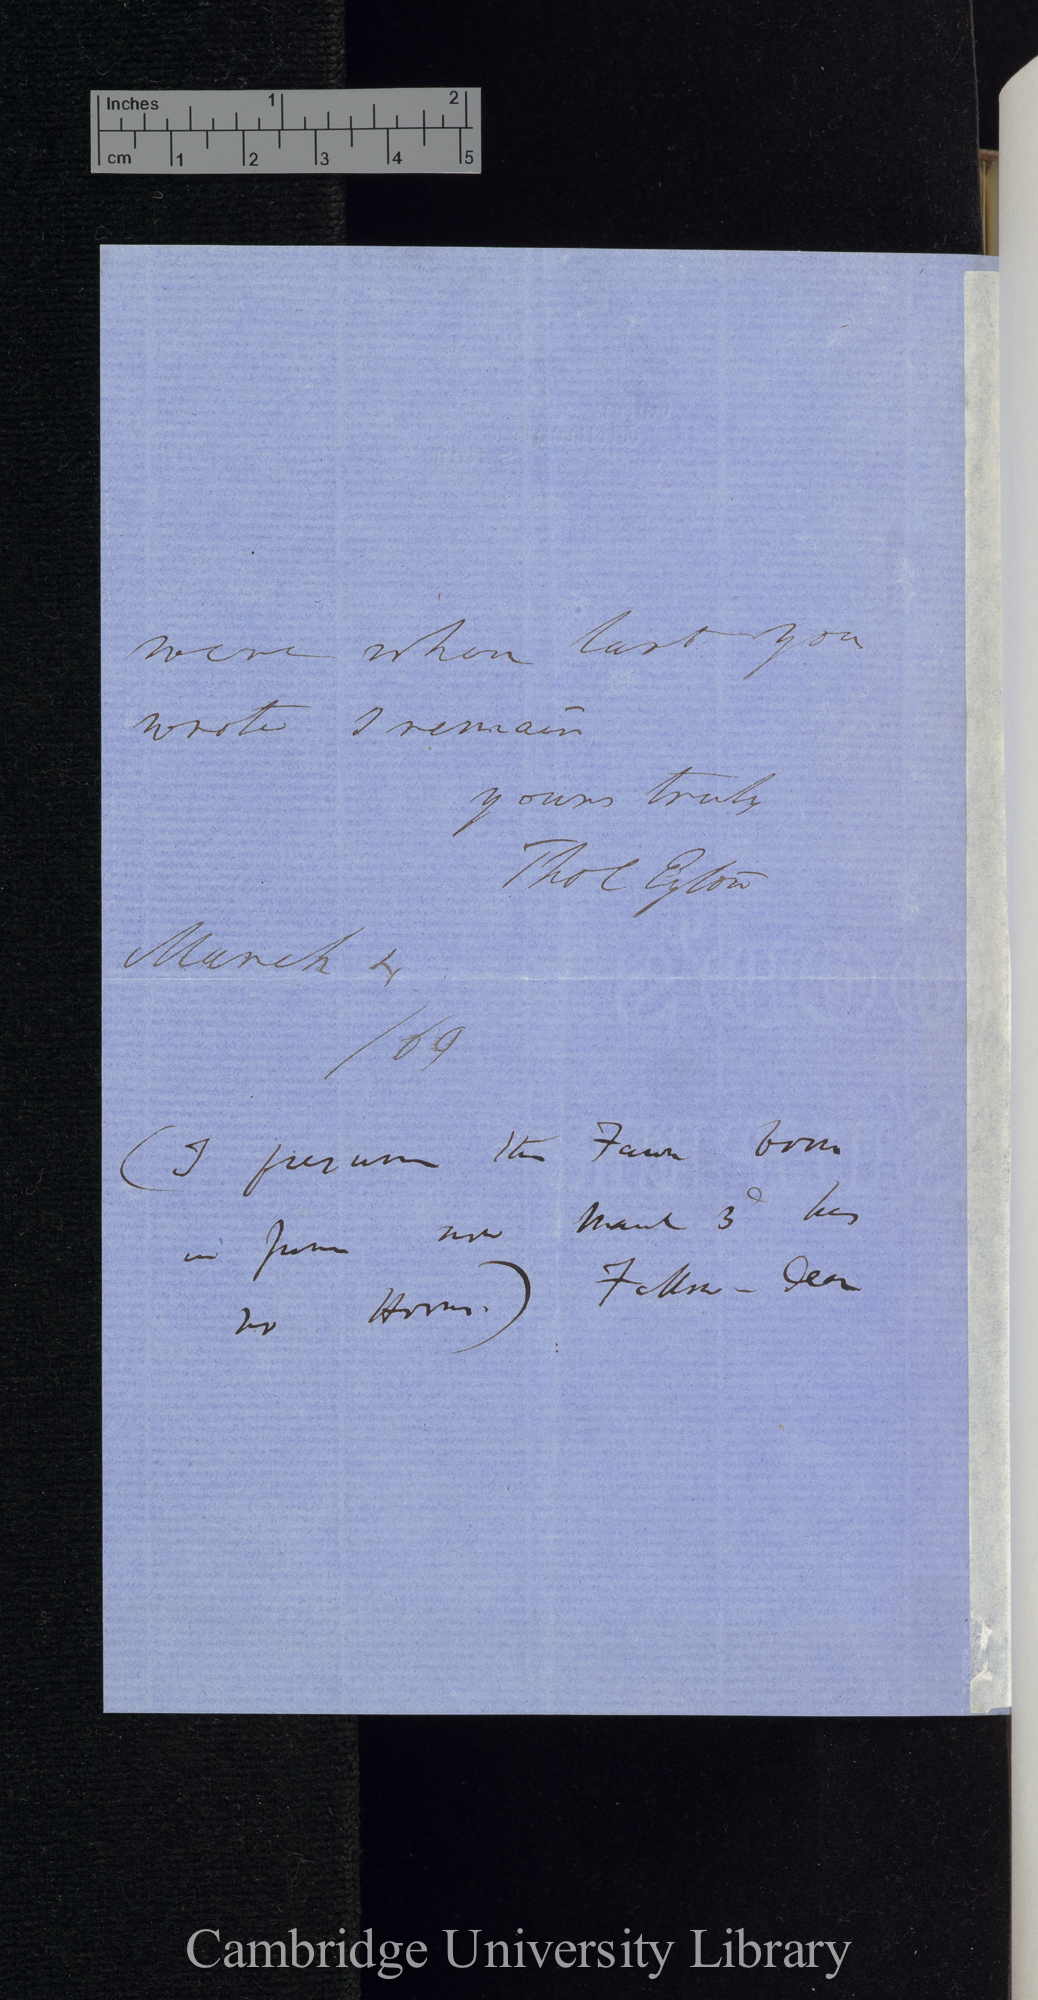 Inches 1 2
cm 1 2 3 4 5
were when last you
wrote I remain
yours truly
Tho C Eyton
March 4
/69
(I presume the Fawn born
in June now March 3d has
no Horns.) Fallow-Deer
Cambridge University Library